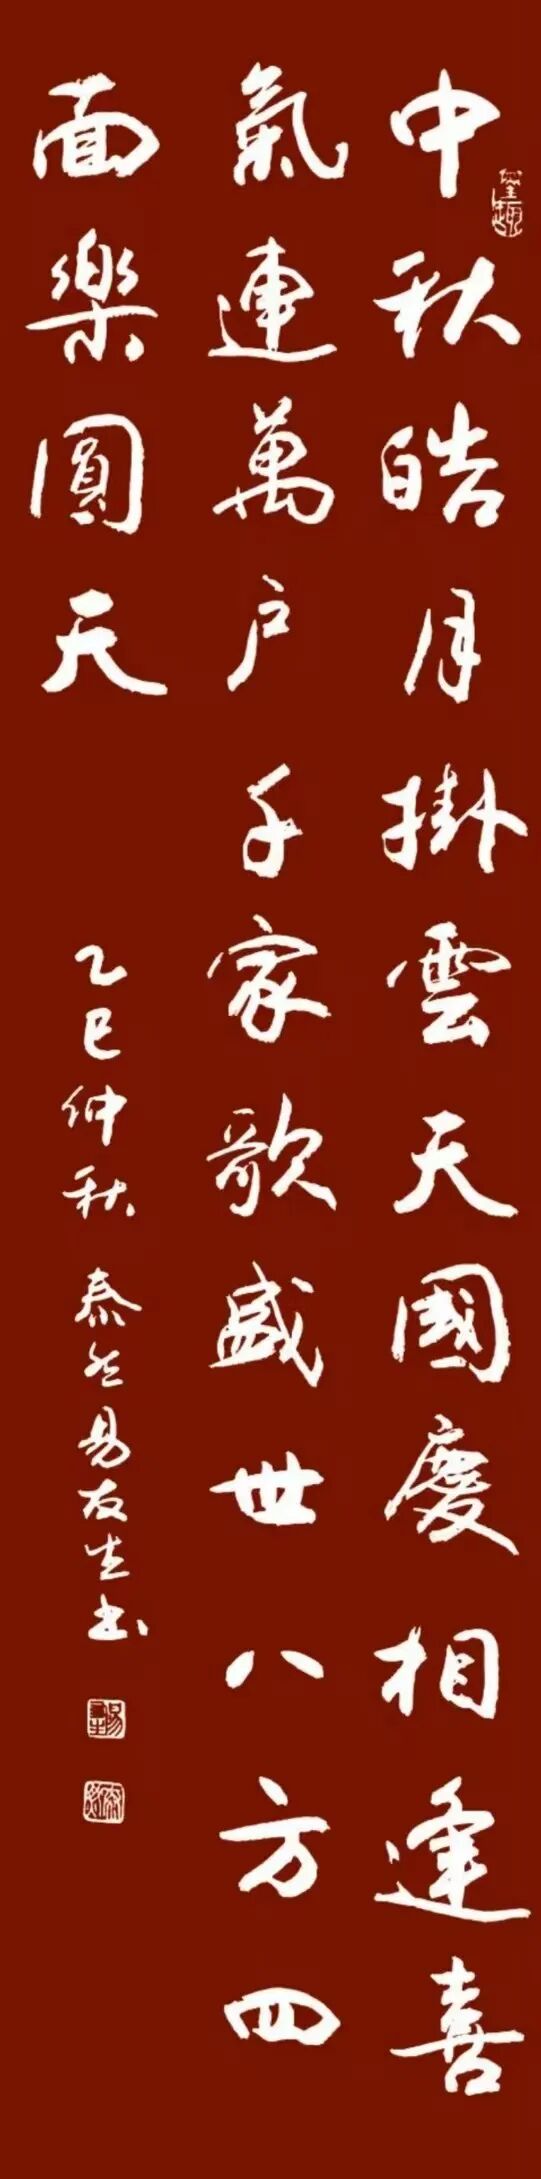 中秋皓月掛雲天國慶相逢喜
氣連萬户千家歌盛世八方四
面樂圓天
乙巳仲秋 泰然易友生书